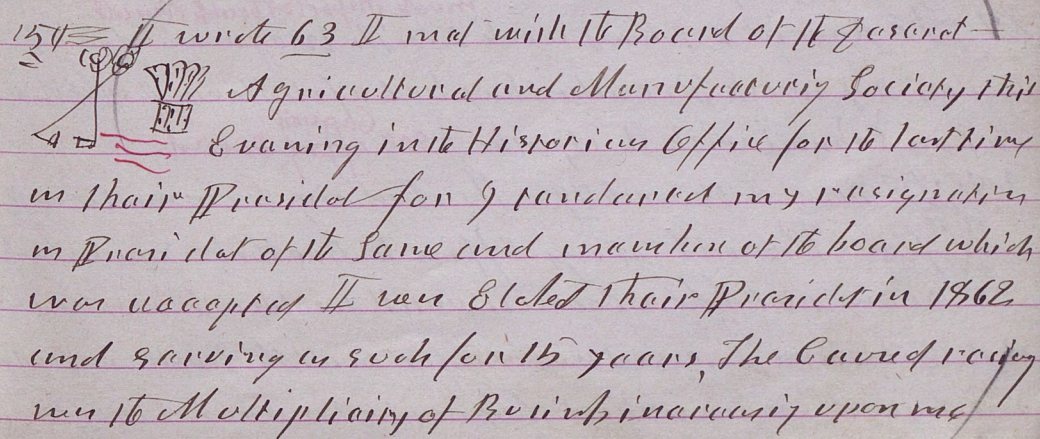 15th I wrote 63 I met with the Board of the Deseret
Agricultural and Manufactoring Society this
Evening in the Historians Office for the last time
as their Presidet for I rendered my resignation
as Presidet of the Same and member of the board which
was accepted I was Elcted their Presidet in 1862
and serving as such for 15 years, The Caused resing
was the Multiplicity of Business increasig upon me